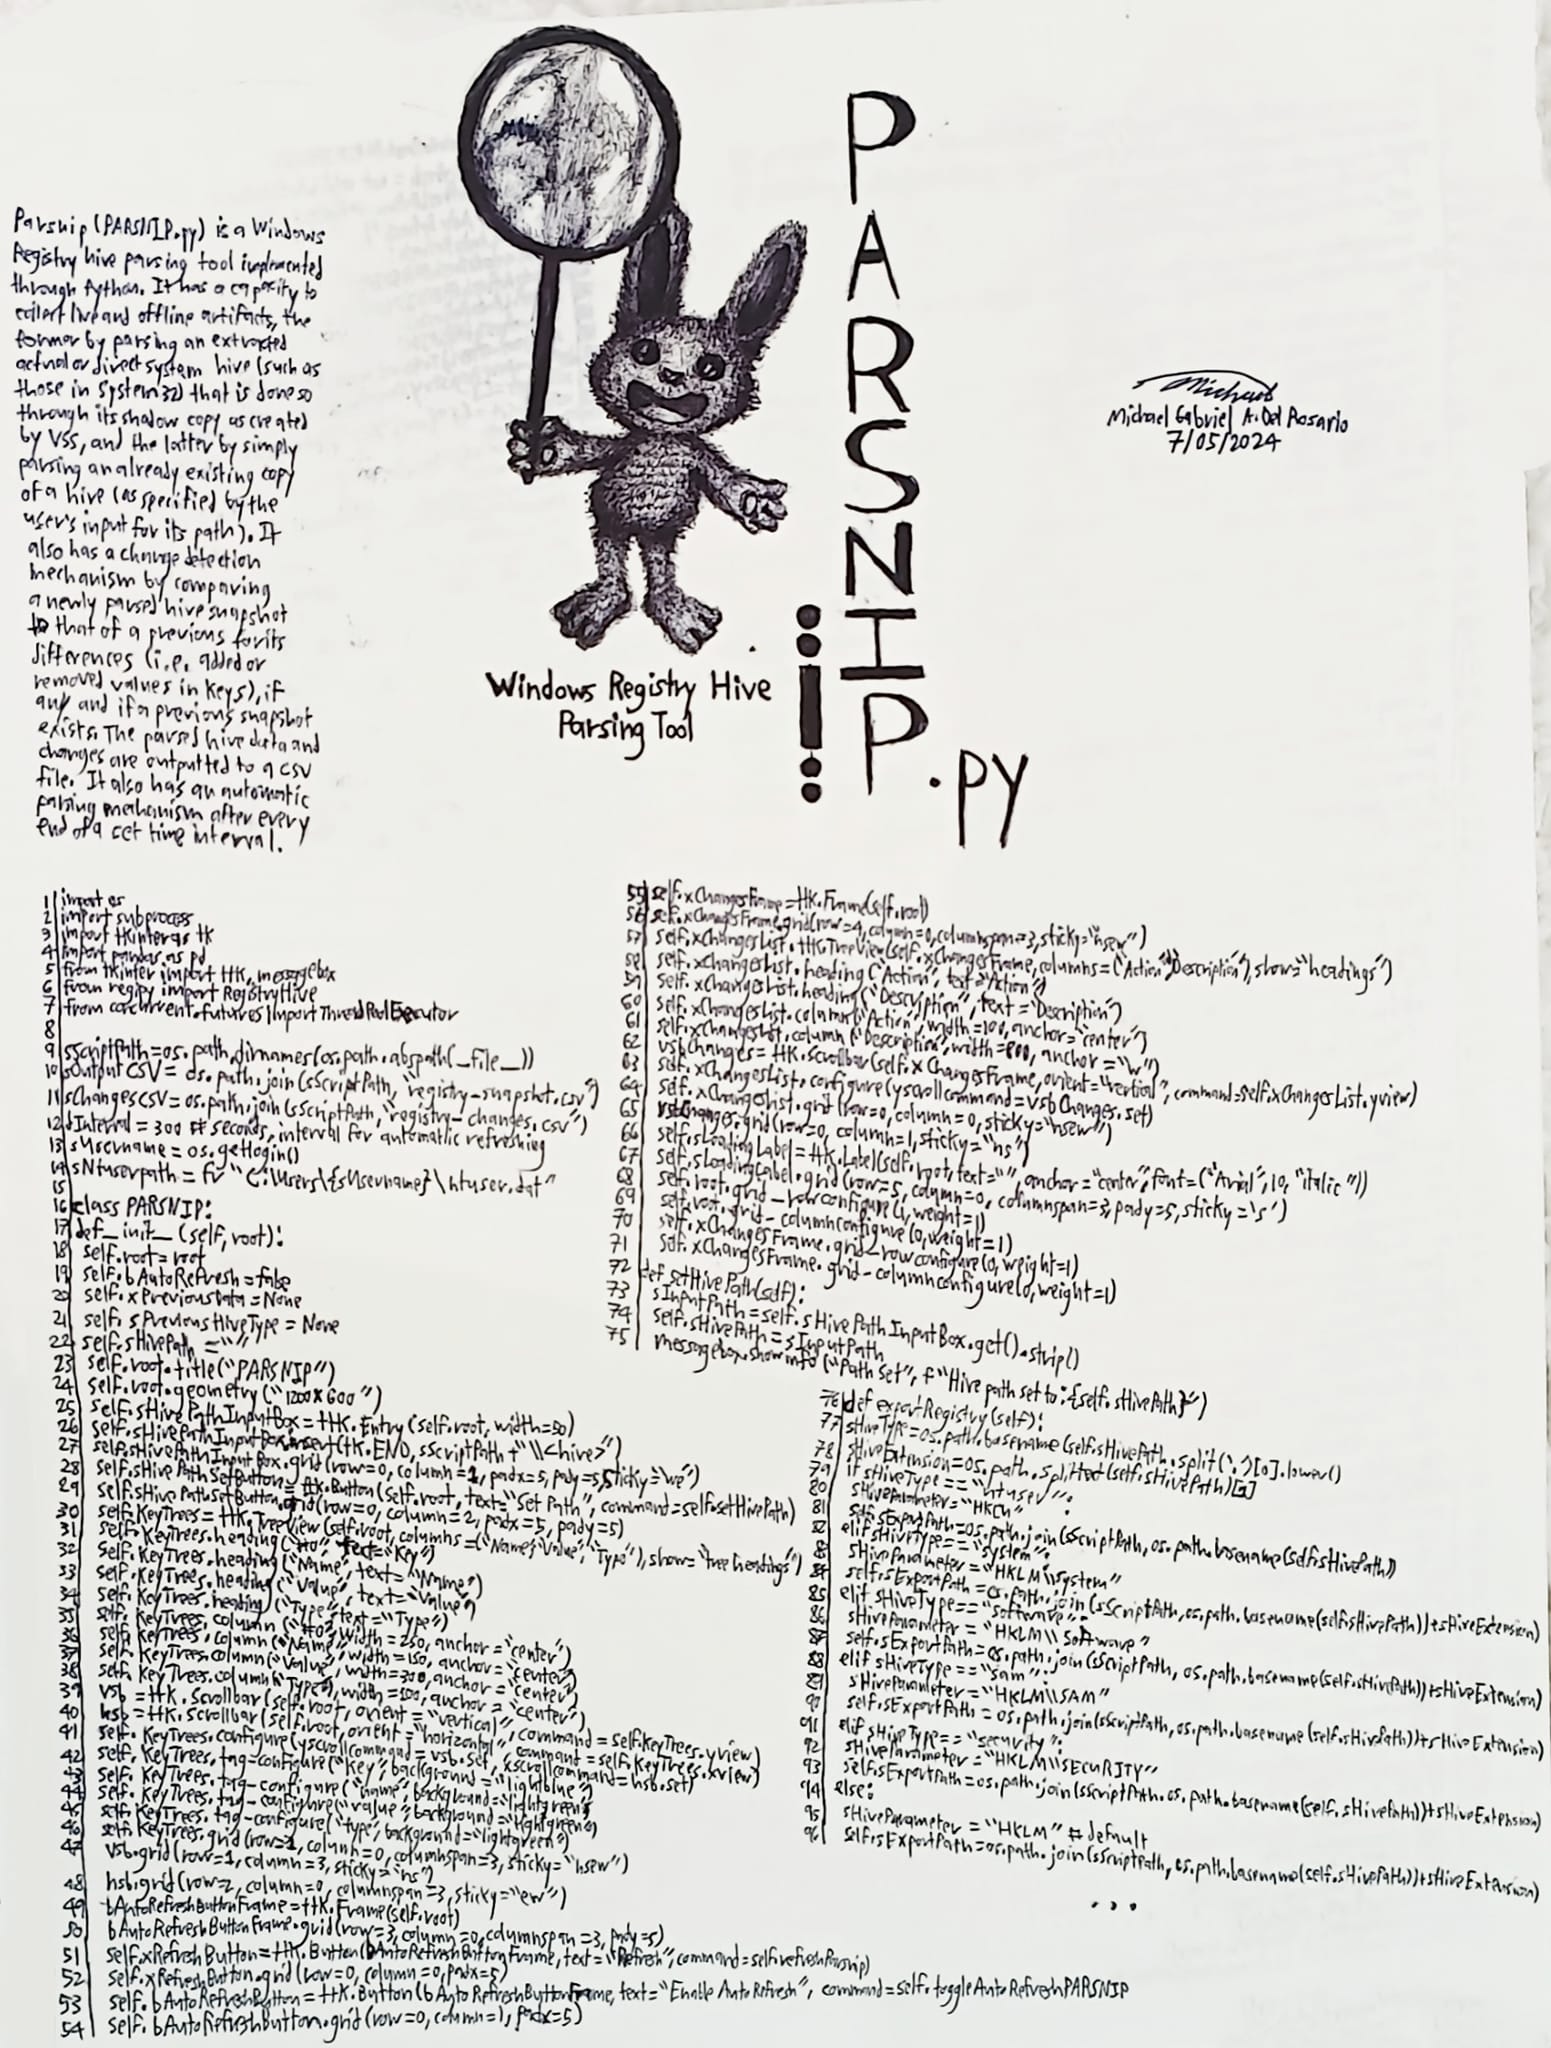 PARSNIP.py
Windows Registry Hive
Parsing Tool
Michael
Michael Gabriel A. Del Rosario
7/05/2024
Parsnip (PARSNIP.py) is a Windows
Registry hive parsing tool implemented
through Python. It has a capacity to
collect live and offline artifacts, the
former by parsing an extracted
actual or direct system hive (such as
those in System32) that is done so
through its shadow copy as created
by VSS, and the latter by simply
parsing an already existing copy
of a hive (as specified by the
user's input for its path). It
also has a change detection
mechanism by comparing
a newly parsed hive snapshot
to that of a previous for its
differences (i.e. added or
removed values in keys), if
any and if a previous snapshot
exists. The parsed hive data and
changes are outputted to a CSV
file. It also has an automatic
parsing mechanism after every
end of a set time interval.
1 import os
2 import subprocess
3 import tkinter as tk
4 import pandas as pd
5 from tkinter import ttk, messagebox
6 from regipy import RegistryHive
7 from concurrent.futures import ThreadPoolExecutor
8
9 sScriptPath=os.path.dirnames(os.path.abspath(__file__))
10 sOutputCSV = os.path.join(sScriptPath, "registry-snapshot.csv")
11 sChangesCSV=os.path.join(sScriptPath, "registry-changes.csv")
12 dInterval = 300 # seconds, interval for automatic refreshing
13 sUsername = os.getlogin()
14 sNtuserpath = fr "C:\Users\{sUsername}\ntuser.dat"
15
16 class PARSNIP:
17 def__init__(self, root):
18 self.root=root
19 self.bAutoRefresh=false
20 self.xPreviousData=None
21 self.sPreviousHiveType = None
22 self.sHivePath =""
23 self.root.title("PARSNIP")
24 self.root.geometry("1200x600")
25 self.sHivePathInputBox=ttk.Entry(self.root, width=50)
26 self.sHivePathInputBox.insert(tk.END, sScriptPath+"\\<hive>")
27 self.sHivePathInputBox.grid(row=0, column=1, padx=5, pady=5, sticky="we")
28 self.sHivePathSetButton= ttk.Button(self.root, text="Set Path", command=self.setHivePath)
29 self.sHivePathSetButton.grid(row=0, column=2, padx=5, pady=5)
30 self.KeyTrees=ttk.TreeView(self.root, columns=("Name", "Value", "Type"), show="tree headings")
31 self.KeyTrees.heading("#0", text="Key")
32 self.KeyTrees.heading("Name", text="Name")
33 self.KeyTrees.heading("Value", text="Value")
34 self.KeyTrees.heading("Type", text="Type")
35 self.KeyTrees.column("#0", width=250, anchor="center")
36 self.KeyTrees.column("Name", width=150, anchor="center")
37 self.KeyTrees.column("Value", width=300, anchor="center")
38 self.KeyTrees.column("Type", width=100, anchor="center")
39 vsb =ttk.Scrollbar(self.root, orient="vertical", command=self.KeyTrees.yview)
40 hsb =ttk.Scrollbar(self.root, orient="horizontal", command=self.KeyTrees.xview)
41 self.KeyTrees.configure(yscrollcommand=vsb.set, xscrollcommand=hsb.set)
42 self.KeyTrees.tag-configure("Key", background="lightblue")
43 self.KeyTrees.tag-configure("name", background="lightgreen")
44 self.KeyTrees.tag-configure("value", background="lightgreen")
45 self.KeyTrees.tag-configure("type", background="lightgreen")
46 self.KeyTrees.grid(row=1, column=0, columnspan=3, sticky="nsew")
47 vsb.grid(row=1, column=3, sticky="ns")
48 hsb.grid(row=2, column=0, columnspan=3, sticky="ew")
49 bAutoRefreshButtonFrame=ttk.Frame(self.root)
50 bAutoRefreshButtonFrame.grid(row=3, column=0, columnspan=3, pady=5)
51 self.xRefreshButton=ttk.Button(bAutoRefreshButtonFrame, text="Refresh", command=self.refreshParsnip)
52 self.xRefreshButton.grid(row=0, column=0, padx=5)
53 self.bAutoRefreshButton=ttk.Button(bAutoRefreshButtonFrame, text="Enable AutoRefresh", command=self.toggleAutoRefreshPARSNIP
54 self.bAutoRefreshButton.grid(row=0, column=1, padx=5)
55 self.xChangesFrame=ttk.Frame(self.root)
56 self.xChangesFrame.grid(row=4, column=0, columnspan=3, sticky="nsew")
57 self.xChangesList.ttk.TreeView(self.xChangesFrame, columns=("Action","Description"), show="headings")
58 self.xChangesList.heading("Action", text="Action")
59 self.xChangesList.heading("Description", text="Description")
60 self.xChangesList.column("Action", width=100, anchor="center")
61 self.xChangesList.column("Description", width=800, anchor="w")
62 vsbChanges= ttk.Scrollbar(self.xChangesFrame, orient="vertical", command=self.xChangesList.yview)
63 self.xChangesList.configure(yscrollcommand=vsbChanges.set)
64 self.xChangesList.grid(row=0, column=0, sticky="nsew")
65 vsbChanges.grid(row=0, column=1, sticky="ns")
66 self.sLoadingLabel=ttk.Label(self.root, text="", anchor="center", font=("Arial", 10, "italic"))
67 self.sLoadingLabel.grid(row=5, column=0, columnspan=3, pady=5, sticky='s')
68 self.root.grid-rowconfigure(1, weight=1)
69 self.root.grid-columnconfigure(0, weight=1)
70 self.xChangesFrame.grid-rowconfigure(0, weight=1)
71 self.xChangesFrame.grid-columnconfigure(0, weight=1)
72 def setHivePath(self):
73 sInputPath=self.sHivePathInputBox.get().strip()
74 self.sHivePath=sInputPath
75 messagebox.showinfo("Path Set", f"Hive path set to: {self.sHivePath}")
76 def exportRegistry(self):
77 sHiveType=os.path.basename(self.sHivePath.split('.')[0].lower()
78 sHiveExtension=os.path.splitted(self.sHivePath)[1]
79 if sHiveType == "ntuser":
80 sHiveParameter="HKCU"
81 self.sExportPath=os.path.join(sScriptPath, os.path.basename(self.sHivePath))
82 elif sHiveType== "system":
83 sHiveParameter="HKLM\\System"
84 self.sExportPath=os.path.join(sScriptPath, os.path.basename(self.sHivePath))+sHiveExtension)
85 elif sHiveType== "software":
86 sHiveParameter = "HKLM\\Software"
87 self.sExportPath=os.path.join(sScriptPath, os.path.basename(self.sHivePath))+sHiveExtension)
88 elif sHiveType=="sam":
89 sHiveParameter="HKLM\\SAM"
90 self.sExportPath = os.path.join(sScriptPath, os.path.basename(self.sHivePath))+sHiveExtension)
91 elif sHiveType=="security":
92 sHiveParameter="HKLM\\SECURITY"
93 self.sExportPath=os.path.join(sScriptPath.os.path.basename(self.sHivePath))+sHiveExtension)
94 else:
95 sHiveParameter = "HKLM" # default
96 self.sExportPath=os.path.join(sScriptPath, os.path.basename(self.sHivePath))+sHiveExtension)
...